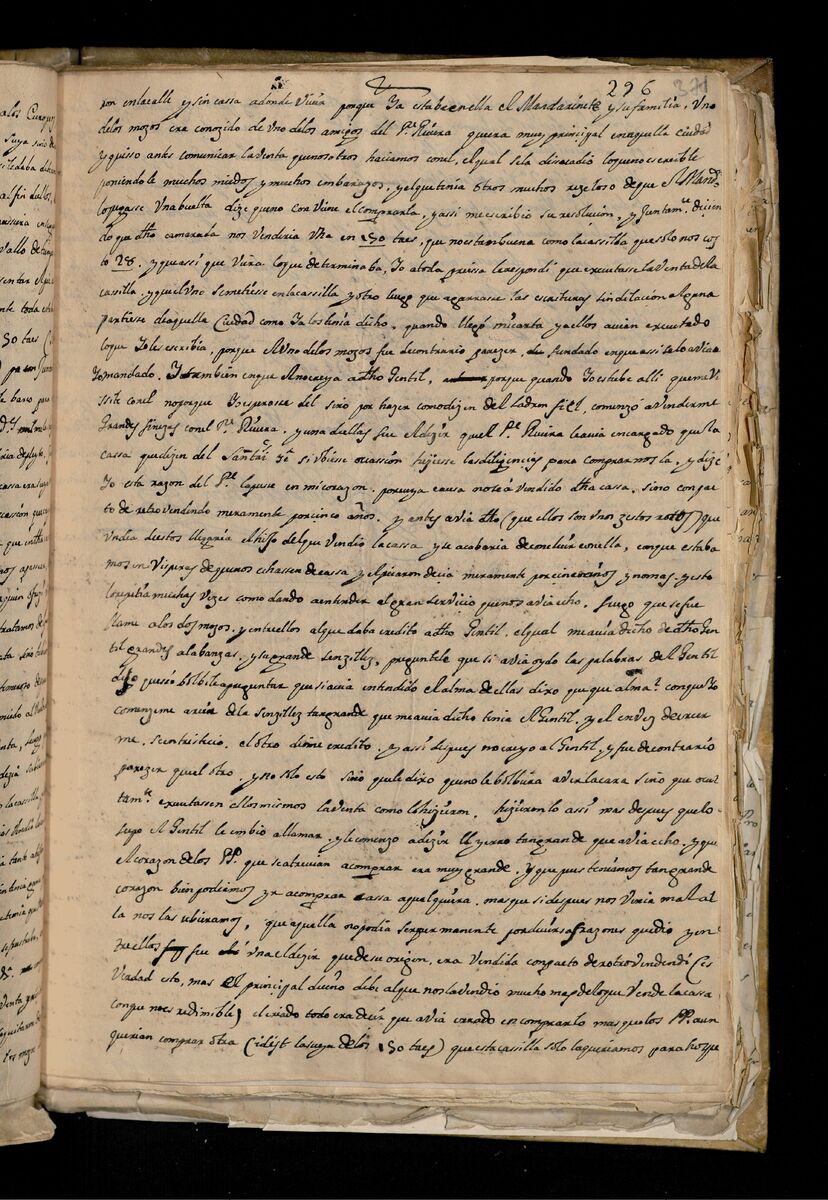 296 371
son en la calle y sin cassa adonde Vivir porque Ya estabe en ella el Mandarinete y su familia. Uno
delos mozos era conozido de Uno delos amigos del Pe. Rivera que era muy principal en aquella ciudad
y quiso antes comunicar la Venta que nosotros haciamos con el, el qual se la disuadió lo que no es creible
poniendole muchos miedos y muchos embarazos, y el que tenia otros muchos rezeloso de que el Mandn.
lo jugasse Una buelta dize que no con Viene el comprarla, y assi me escribio su resolucion, y Juntamte. dicien
do que dho camarada nos Venderia Una en 150 taes, que no es tam buena como la cassilla que solo nos cos
to 28. y que assi que Viera lo que determinaba, Yo a toda priessa le respondi que executasse la Venta de la
cassilla. y que el Uno se metiesse en la cassilla y otro luego que agarrasse las escrituras sin dilacion alguna
partiesse de aquella Ciudad como Ya los tenia dicho. quando llegó mi carta ya ellos avian executado
lo que Yo les escribia, porque el Uno delos mozos fue de contrario parezer, fundado en que assi se lo avia
Yo mandado. Y tambien en que el no creya a dho Gentil, porque quando Yo estube alli que me Vi
sité con el no porque Yo esperasse del sino por hazer como dizen del Ladron fiel, comenzó a Venderme
grandes finezas con el Pe. Rivera. y una de ellas fue el dezir que el Pe. Rivera le avia encargado que la
cassa que dizen del si Ubiesse ocassion hiziesse las diligencias para comprarnosla. y dize
Yo esta razon del Pe. la puse en mi corazon. por cuya causa no se á vendido dha cassa, sino con pac
to de retrovendendo meramente por cinco años. y antes avia dho (que ellos son unos zestos rotos) que
Un dia de estos llegaria el hijo del que Vendio la cassa y se acabaria de concluir con ella, con que estaba
mos en Visperas de que nos echassen de cassa y el picaron decia meramente por cinco años y no mas. y esto
lo repitia muchas vezes como dando a entender el gran servicio que nos avia echo. luego que se fue
llame a los dos mozos, y entre ellos al que daba credito a dho Gentil, el qual me avia dicho de dho Gen
til grandes alabanzas, y su grande senzillez, preguntele que si avia oydo las palabras del Gentil
dijo que si bolbile a preguntar que si avia entendido el alma de ellas dixo que que alma?. con que Yo
comenzeme a reir de la senzillez tan grande que me avia dicho tenia el Gentil. y el en vez de creer
me, se entristecio. el otro dime credito. y assi despues no creyo al Gentil, y fue de contrario
parezer que el otro. y no solo esto sino que le dixo que no le bolbiera a ver la cara sino que ocul
tamte. executassen ellos mismos la venta como lo hizieron. hizieronlo assi mas despues que lo
supo el Gentil le embio a llamar. y le comenzo a dezir el yerro tan grande que avia echo. y que
el corazon delos PP. que se atrevian a comprar era muy grande. Y que pues teniamos tan grande
corazon bien podiamos yr a comprar cassa a qualquiera, mas que si despues nos Viniera mal al
la nos las ubieramos, que aquella no podia ser permanente por diversas razones que dio y en
tre ellos fue una el dezir que de su origen, era vendida con pacto de retrovendendo (es
Verdad esto, mas el principal dueño debe al que nos la vendio mucho mas de lo que Vale la cassa
con que no es redimible) el criado todo era decir que avia errado en comprarlo mas que los PP. aun
querian comprar otra (idest la suya de los 150 taes) que esta cassilla solo la queriamos para hospe